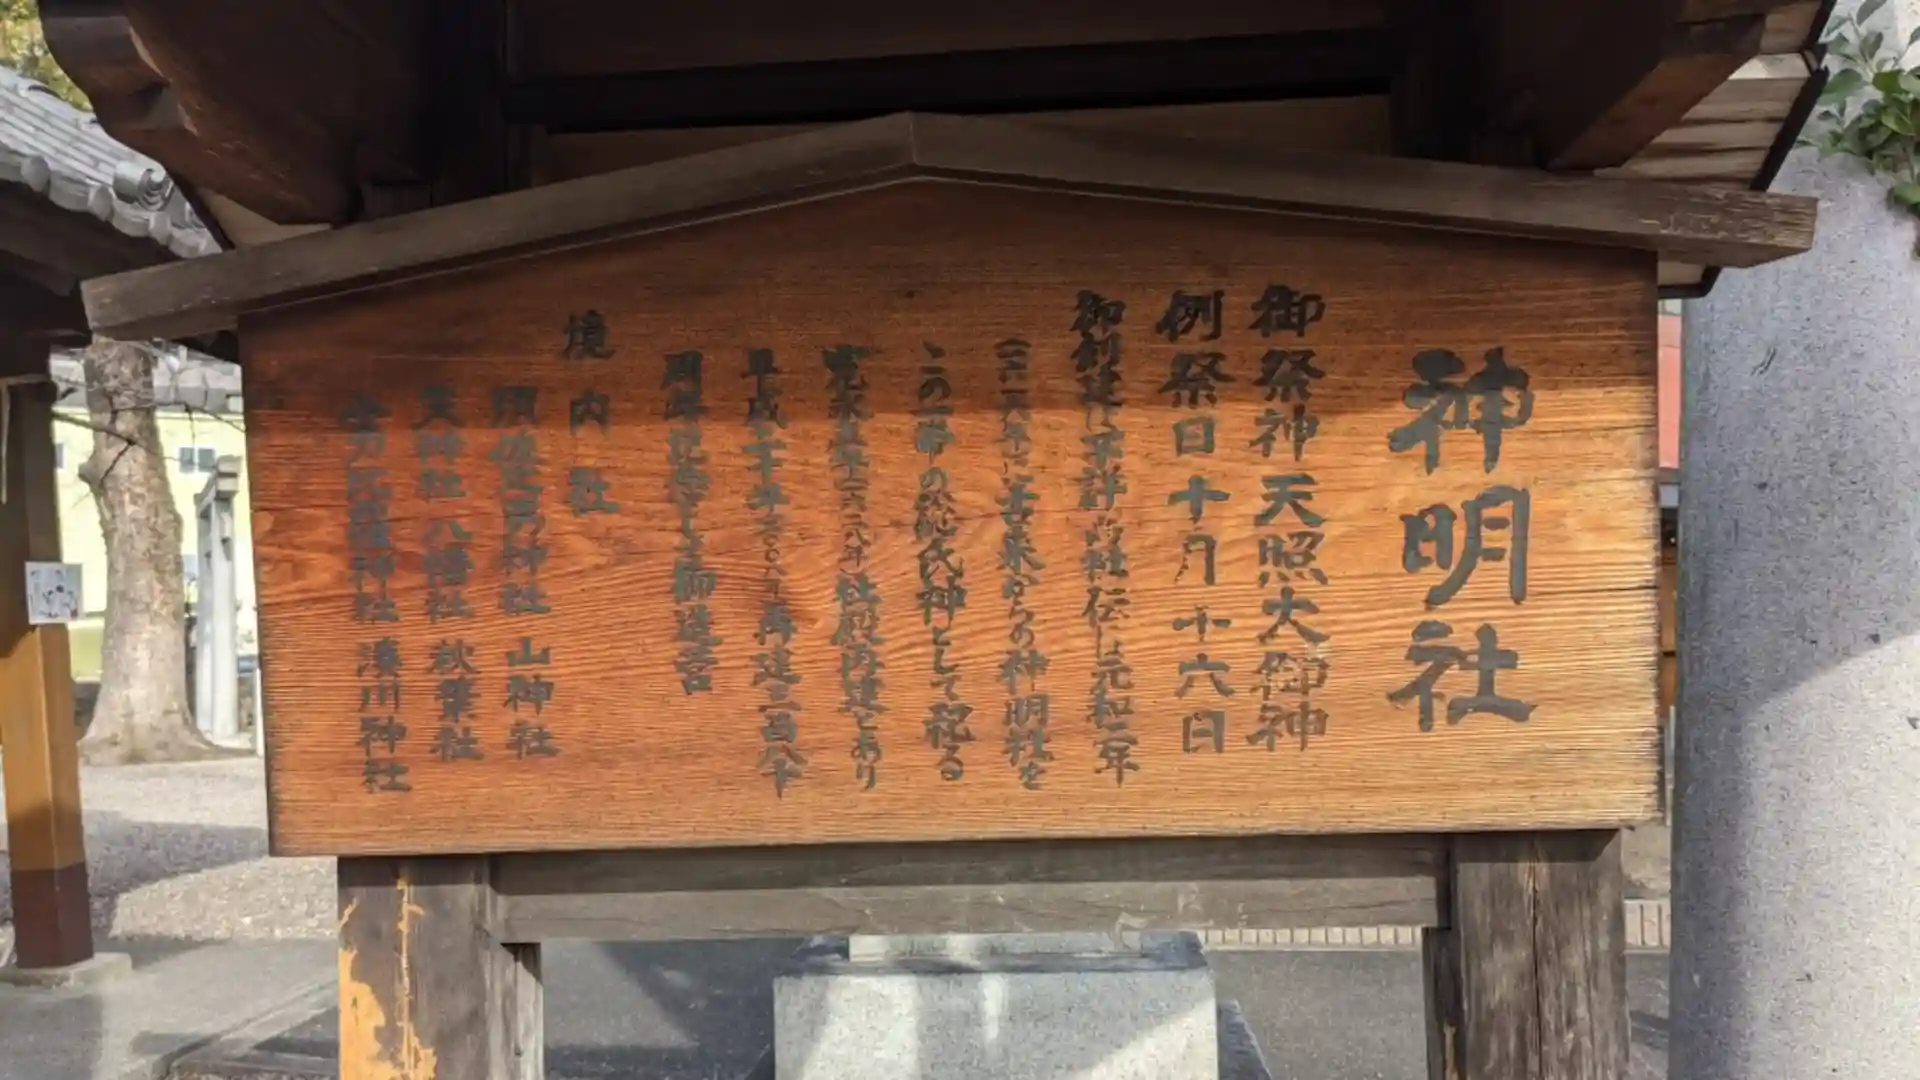 神明社
御祭神 天照大御神
例祭日 十月十六日
御創建は不詳 社伝は元和二年
(一六一六年)に古来からの神明社を
この一帯の総氏神として祀る
寛永五年(一六二八年)社殿内建とあり
平成二十年(二〇〇八年)再建三百八十
周年記念し御造営
境内社
須佐之男神社 山神社
天神社 八幡社 秋葉社
金刀比羅神社 湊川神社